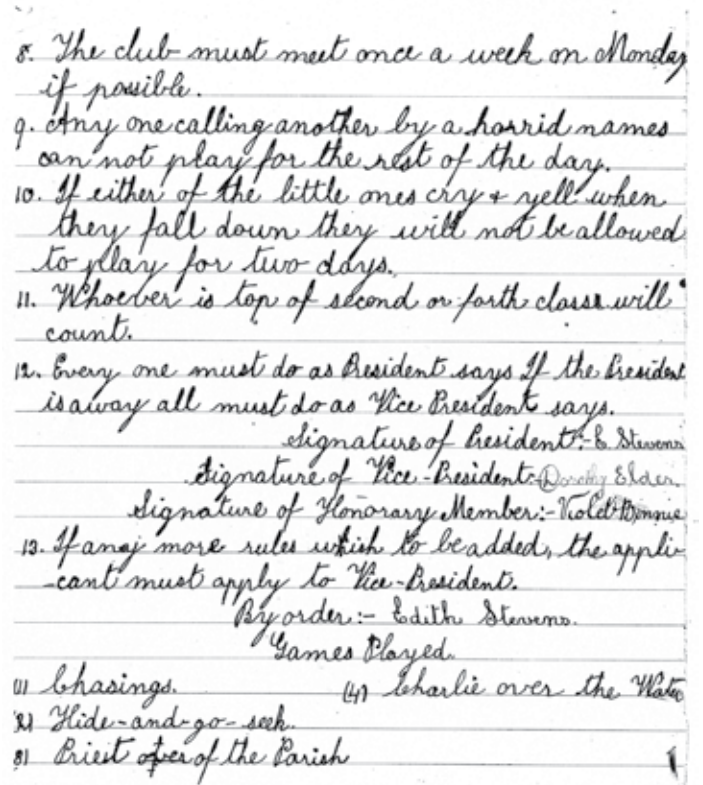 8. The club must meet once a week on Monday
if possible.
9. Any one calling another by a horrid names
can not play for the rest of the day.
10. If either of the little ones cry & yell when
they fall down they will not be allowed
to play for two days.
11. Whoever is top of second or forth class will
count.
12. Every one must do as President says If the President
is away all must do as Vice President says.
Signature of President:- E. Stevens
Signature of Vice-President:- Dorothy Elder.
Signature of Honorary Member:- Violet Binnie
13. If any more rules wish to be added, the appli-
-cant must apply to Vice-President.
By order:- Edith Stevens.
Games Played.
(1) Chasings. (4) Charlie over the Water
(2) Hide-and-go-seek.
(3) Priest of the Parish